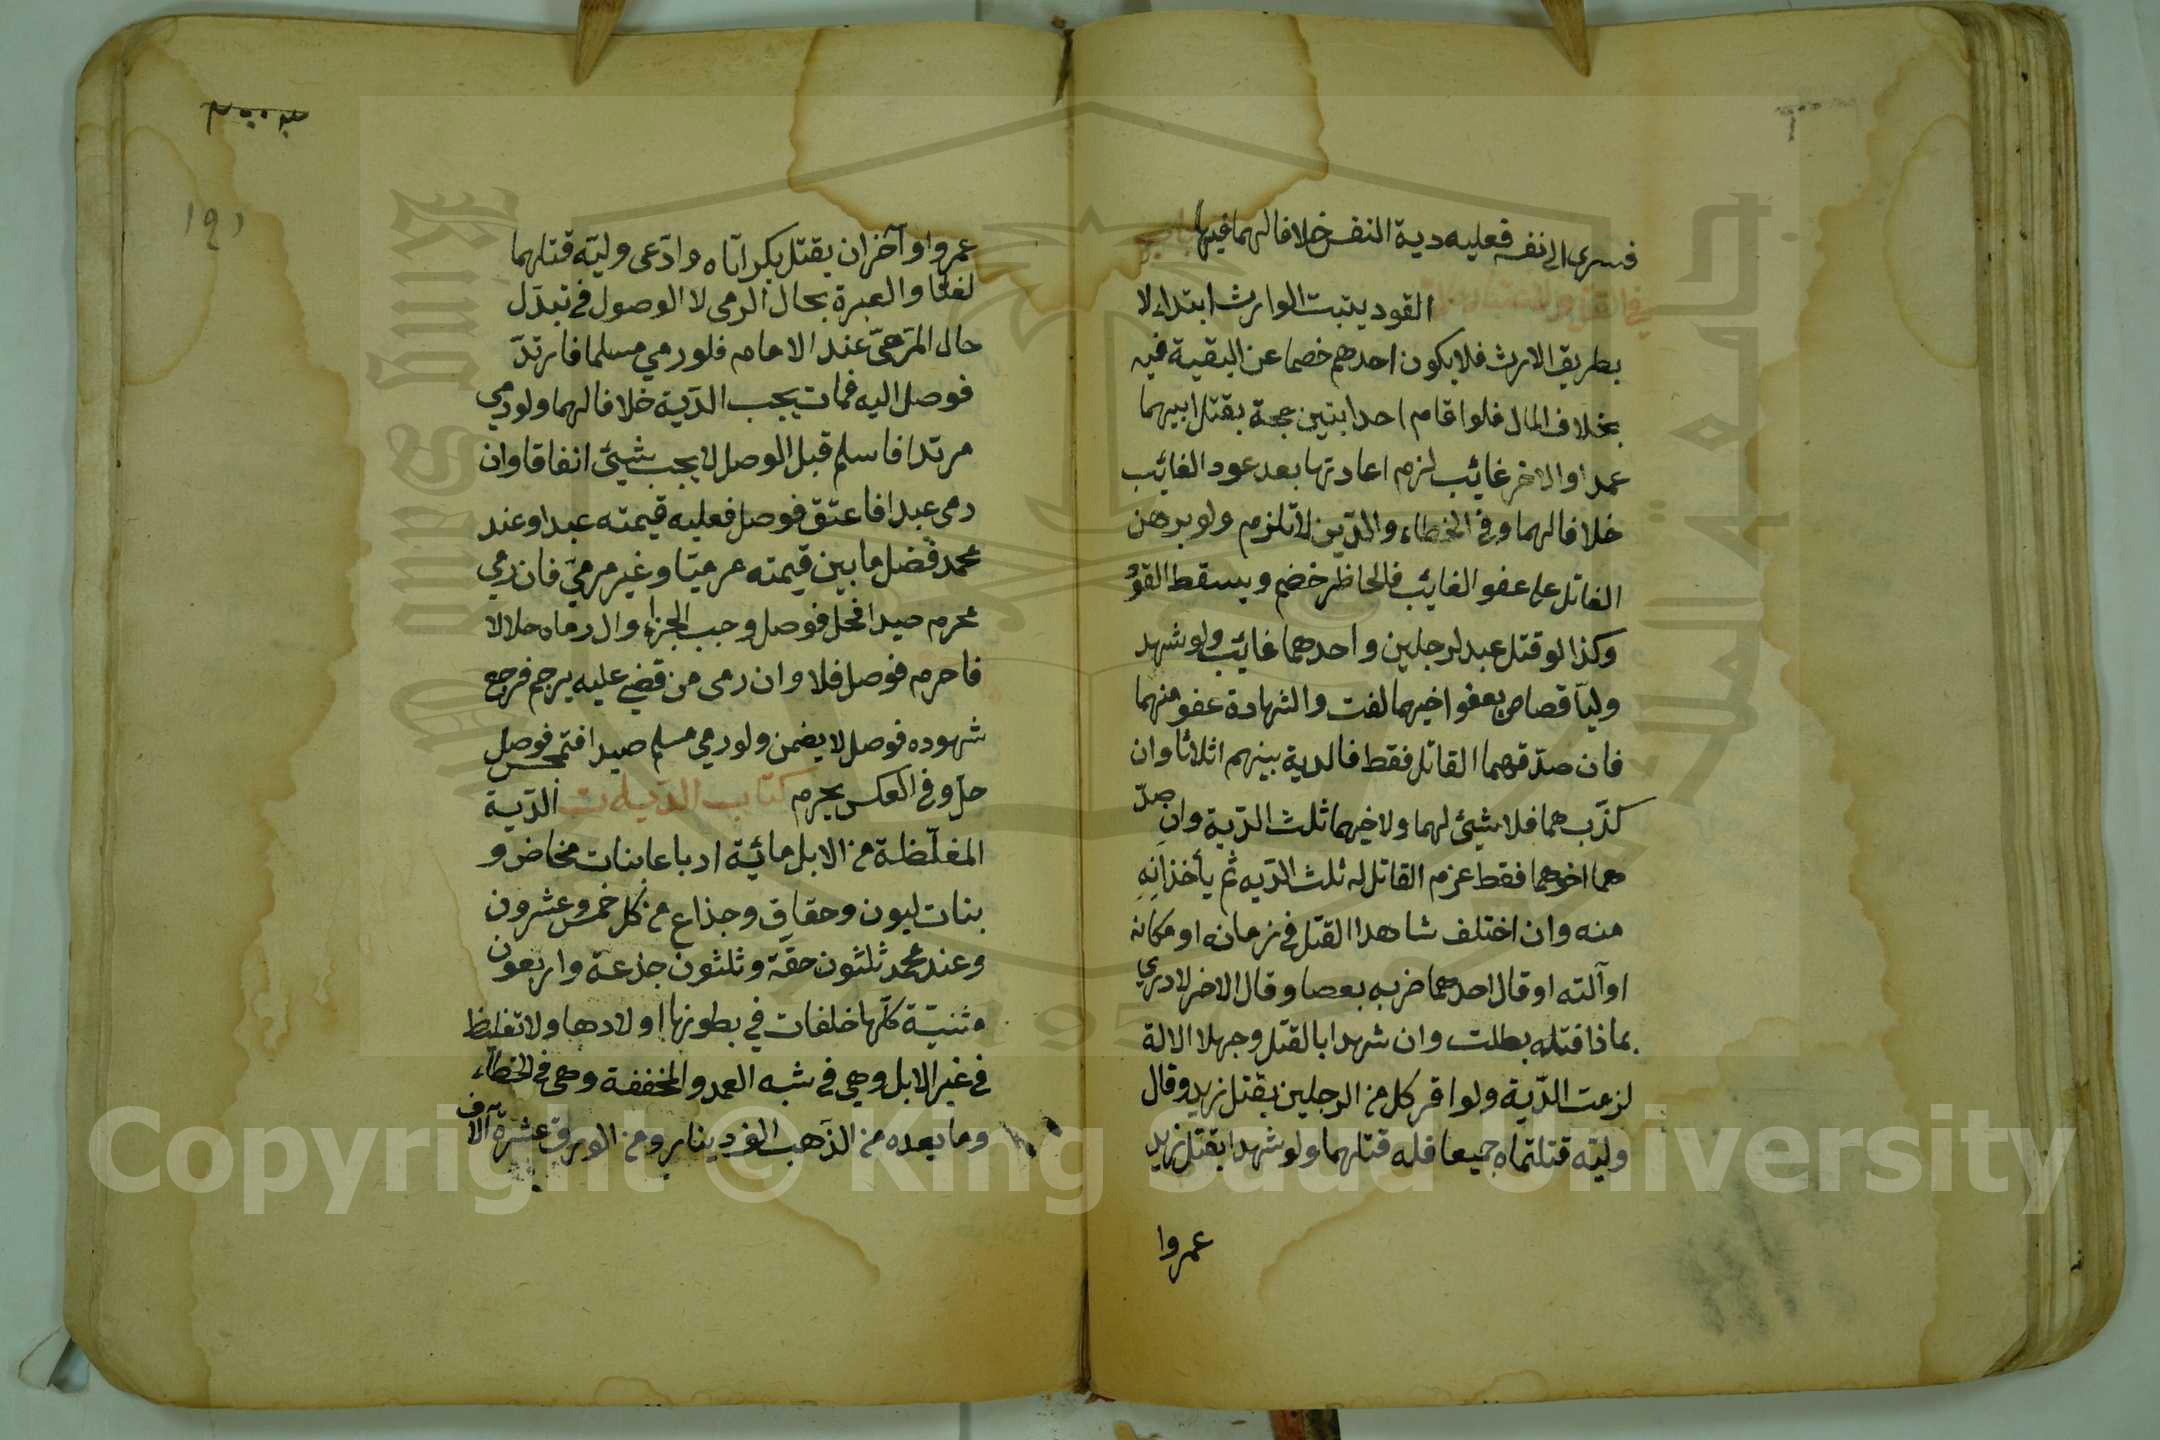 فسرى الى نفسه فعليه دية النفس خلافا لهما فيها باب
في القتل القود يثبت للوارث ابتداء لا
بطريق الارث فلا يكون احدهم خصما عن البقية فيه
بخلاف المال فلو اقام احد ابنين حجة بقتل ابيهما
عمدا والاخر غائب لزم اعادتها بعد عود الغائب
خلافا لهما وفي الخطاء والدين لا تلزم ولو برهن
القاتل على عفو الغايب فالحاظر خضم ويسقط القود
وكذا لو قتل عبد لرجلين واحدهما غائب ولو شهد
وليا قصاص بعفو اخيهما لغت والشهادة عفو منهما
فان صدقهما القاتل فقط فالدية بينهم اثلاثا وان
كذبهما فلا شيئ لهما ولاخيهما ثلث الدية وان صد
هما اخوهما فقط غرم القاتل له ثلث الديه ثم يأخذانه
منه وان اختلف شاهدا القتل في زمانه او مكانه
او آلته او قال احدهما ضربه بعصا وقال الاخر لا ادري
بماذا قتله بطلت وان شهدا بالقتل وجهلا الالة
لزمت الدية ولو اقر كل من الرجلين بقتل زيد وقال
وليه قتلتماه جميعا فله قتلهما ولو شهدا بقتل زيد
عمروا
١٩١
عمروا وآخران بقتل بكر اياه وادعى وليه قتلهما
لغتا والعبرة بحال الرمى لا الوصول في تبدل
حال المرمى عند الامام فلو رمي مسلما فارتد
فوصل اليه فمات يجب الدية خلافا لهما ولو رمي
مرتدا فاسلم قبل الوصل لا يجب شيئ اتفاقا وان
رمى عبدا فاعتق فوصل فعليه قيمته عبدا وعند
محمد فضل ما بين قيمته مرميا وغير مرمي فان رمي
محرم صيدا فحل فوصل وجب الجزاء وال رماه حلالا
فاحرم فوصل فلا وان رمى من قضي عليه برجم فرجع
شهوده فوصل لا يضمن ولو رمي مسلم صيدا فتمجس فوصل
حل وفي العكس يحرم كتاب الديات الدية
المغلظة من الابل مائية ارباعا بنات مخاض و
بنات لبون وحقاق وجذاع من كل خمس وعشرون
وعند محمد ثلثون حقة وثلثون جذعة واربعون
ثنية كلها خلفات في بطونها اولادها ولا تغليظ
في غير الابل وهي في شبه العمد والمخففة وهي في الخطاء
وما بعده من الذهب الف دينار ومن الورق عشرة آلاف
Copyright © King Saud University
جامعة الملك
King Saud
195